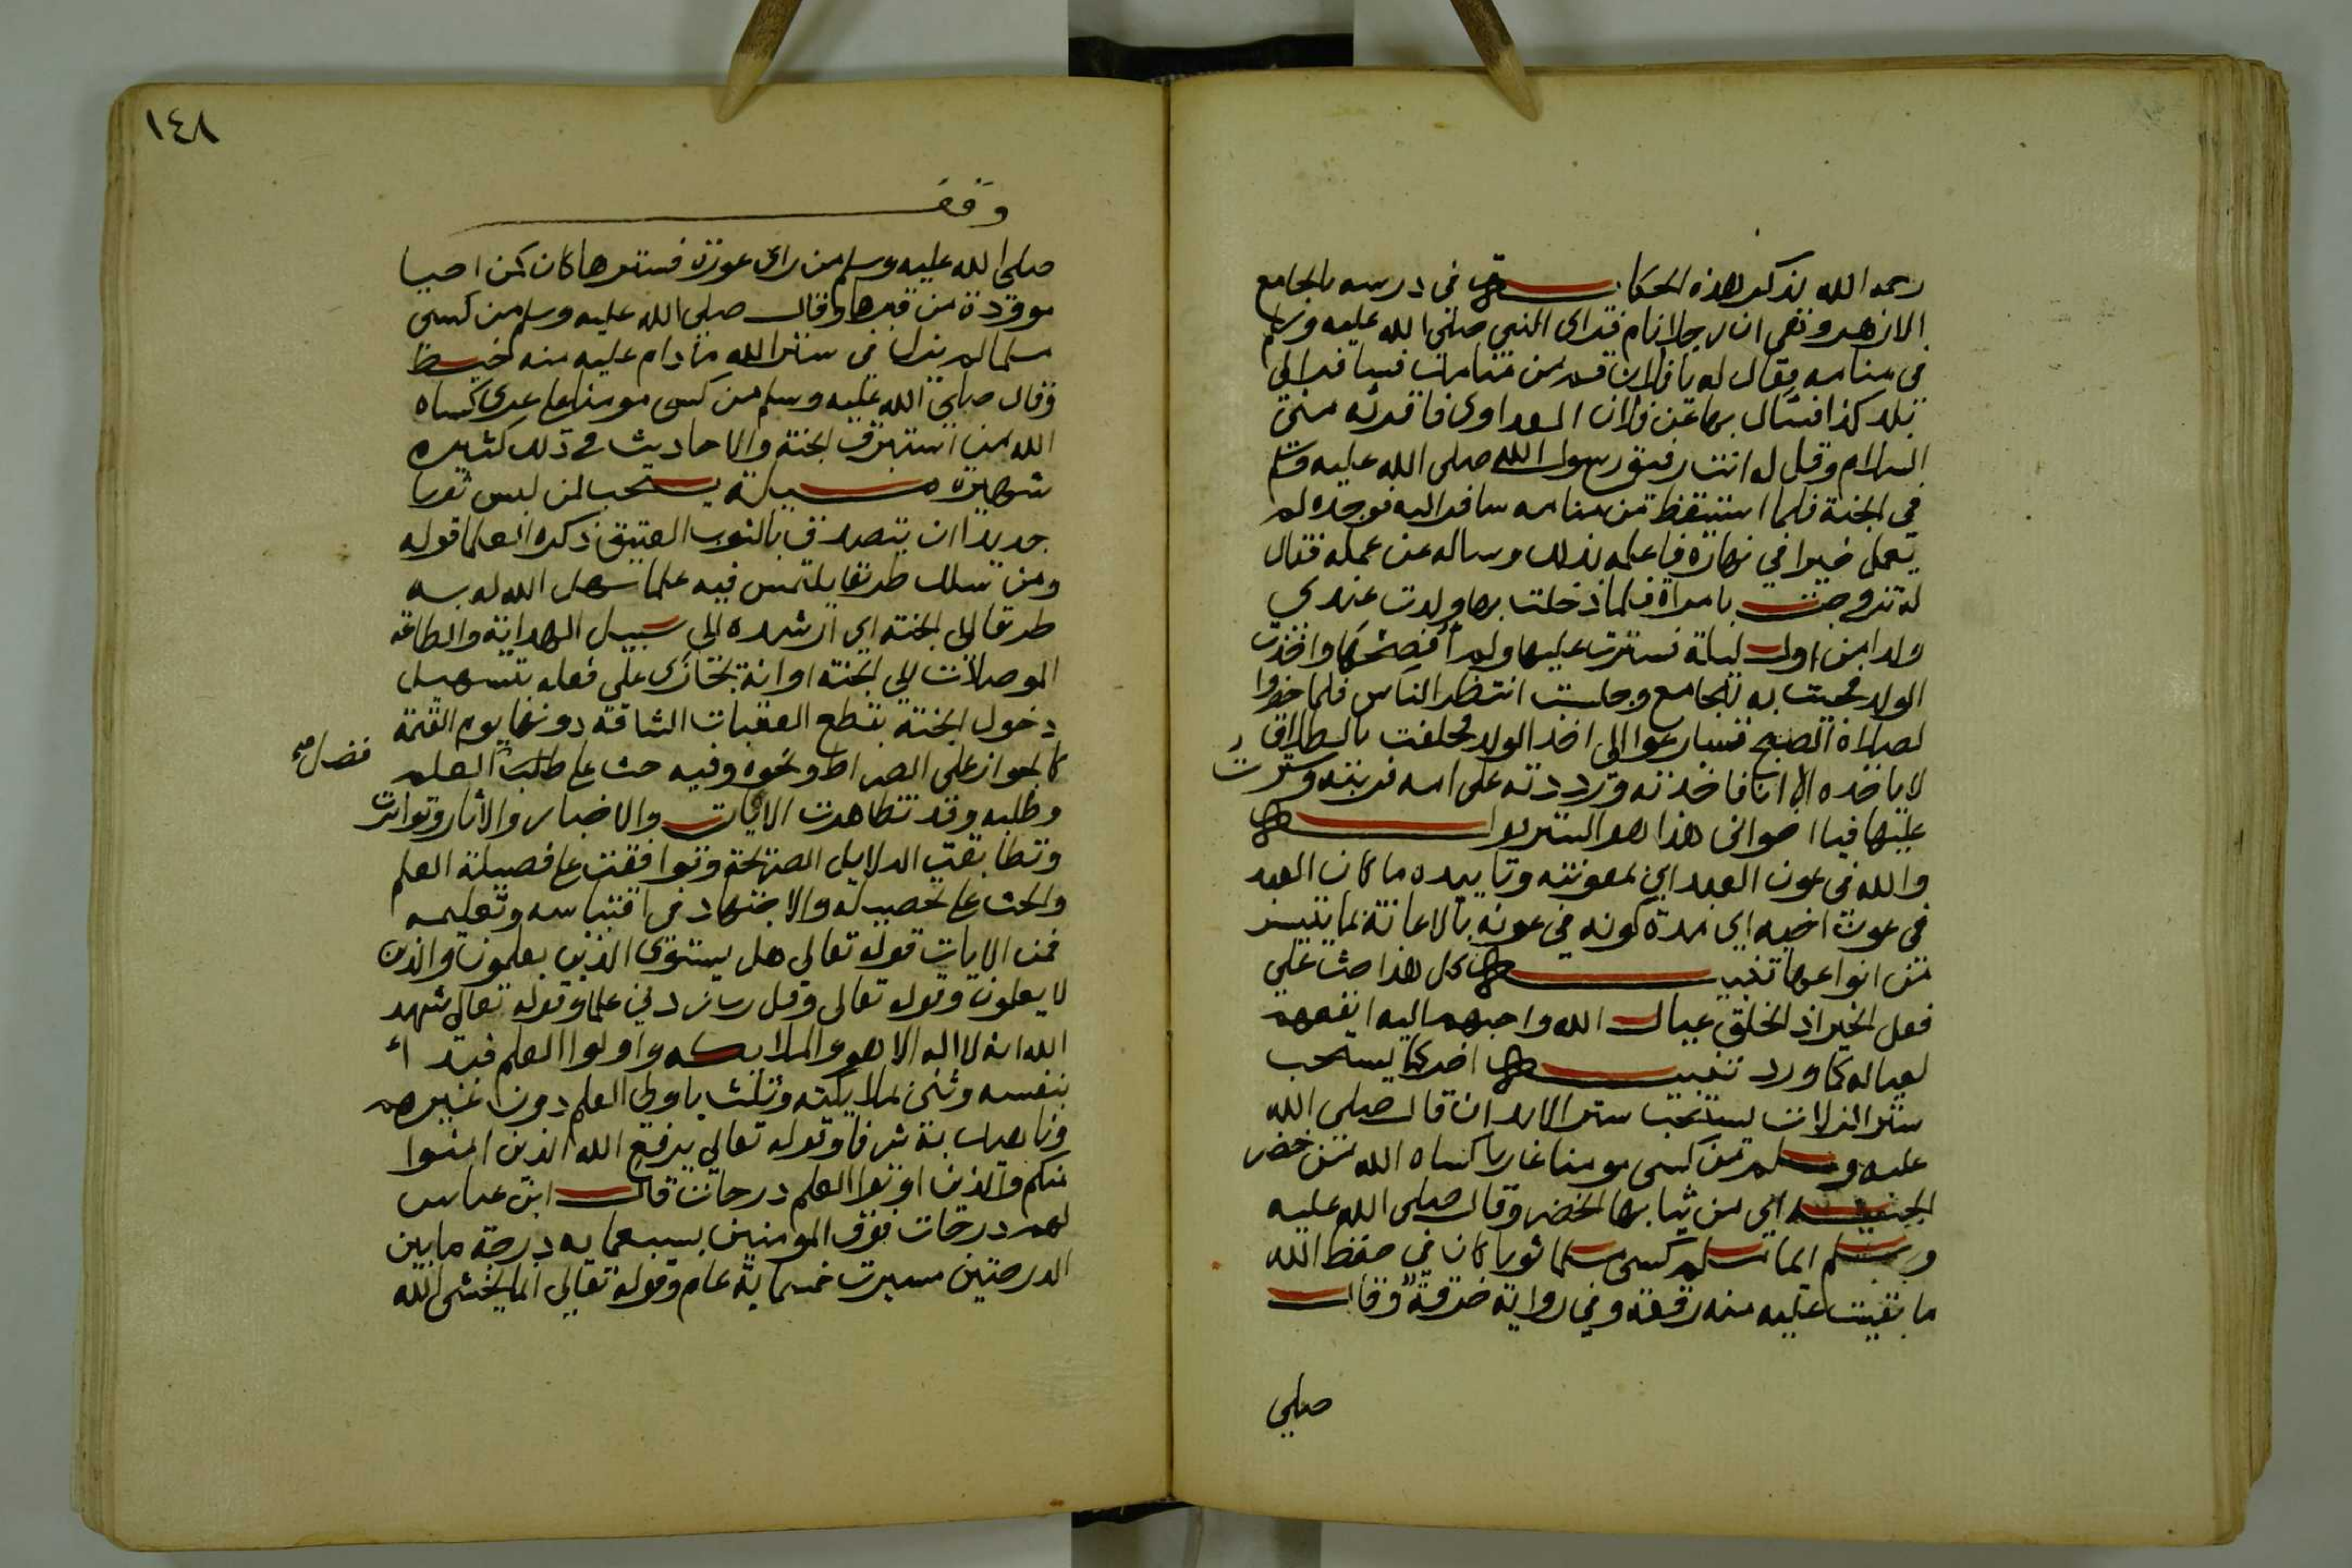 رحمه الله يذكر هذه الحكاية في درسه بالجامع
الازهر وهي ان رجلا نام فراى النبي صلى الله عليه وسلم
في منامه فقال له يا فلان قم من منامك فسافر الى
بلد كذا فسال بها عن فلان فاقرئه مني
السلام وقل له انت رفيق رسول الله صلى الله عليه وسلم
في الجنة فلما استيقظ من منامه سافر اليه فوجده لم
يعمل خيرا في نهاره فاعلمه بذلك وساله عن عمله فقال
له تزوجت بامراة فلما دخلت بها ولدت عندي
ولدا من اول ليلة فسترت عليها ولم افضحها واخذت
الولد فجيت به للجامع وجلست انتظر الناس فلما حضروا
لصلاة الصبح فسارعوا الى اخذ الولد فحلفت بالطلاق
لا ياخذه الا انا فاخذته ورددته على امه فربته وسترت
عليها فيا اخواني هذا هو الستر
والله في عون العبد اي بمعونته وتاييده ما كان العبد
في عون اخيه اي مدة كونه في عونه بالاعانة بما يتيسر
من انواعها تنبيه كل هذا حث على
فعل الخير اذ الخلق عيال الله واحبهم اليه انفعهم
لعياله كما ورد تنبيه اخر كما يستحب
ستر الزلات يستحب ستر الابدان قال صلى الله
عليه وسلم من كسى مومنا عاريا كساه الله من خضر
الجنة اي من ثيابها الخضر وقال صلى الله عليه
وسلم ايما مسلم كسى مسلما ثوبا كان في حفظ الله
ما بقيت عليه منه رقعة وفي رواية خرقة وقال
صلي
١٤٨
وقف
صلى الله عليه وسلم من راى عورة فسترها كان كمن احيا
موؤدة من قبرها وقال صلى الله عليه وسلم من كسى
مسلما لم يزل في ستر الله ما دام عليه منه خيط
وقال صلى الله عليه وسلم من كسى مومنا على عرى كساه
الله من استبرق الجنة والاحاديث في ذلك كثيرة
شهيرة مسيلة يستحب لمن لبس ثوبا
جديدا ان يتصدق بالثوب العتيق ذكره العلما قوله
ومن سلك طريقا يلتمس فيه علما سهل الله له به
طريقا الى الجنة اي ارشده الى سبيل الهداية والطاعة
الموصلات الى الجنة او انه يجازى على فعله بتسهيل
دخول الجنة بقطع العقبات الشاقة دونها يوم القيمة
كالجواز على الصراط ونحوه وفيه حث على طلب العلم
فضل
وطلبه وقد تظاهرت الايات والاخبار والاثار وتواترت
وتطابقت الدلايل الصريحة وتوافقت على فضيلة العلم
والحث على تحصيله والاجتهاد في اقتباسه وتعليمه
فمن الايات قوله تعالى هل يستوى الذين يعلمون والذين
لا يعلمون وقوله تعالى وقل رب زدني علما وقوله تعالى شهد
الله انه لا اله الا هو والملايكه واولوا العلم فبدا
بنفسه وثنى بملايكته وثلث باولى العلم دون غيرهم
وناهيك به شرفا وقوله تعالى يرفع الله الذين امنوا
منكم والذين اوتوا العلم درجات قال ابن عباس
لهم درجات فوق المومنين بسبعماية درجة ما بين
الدرجتين مسيرت خمسماية عام وقوله تعالى انما يخشى الله